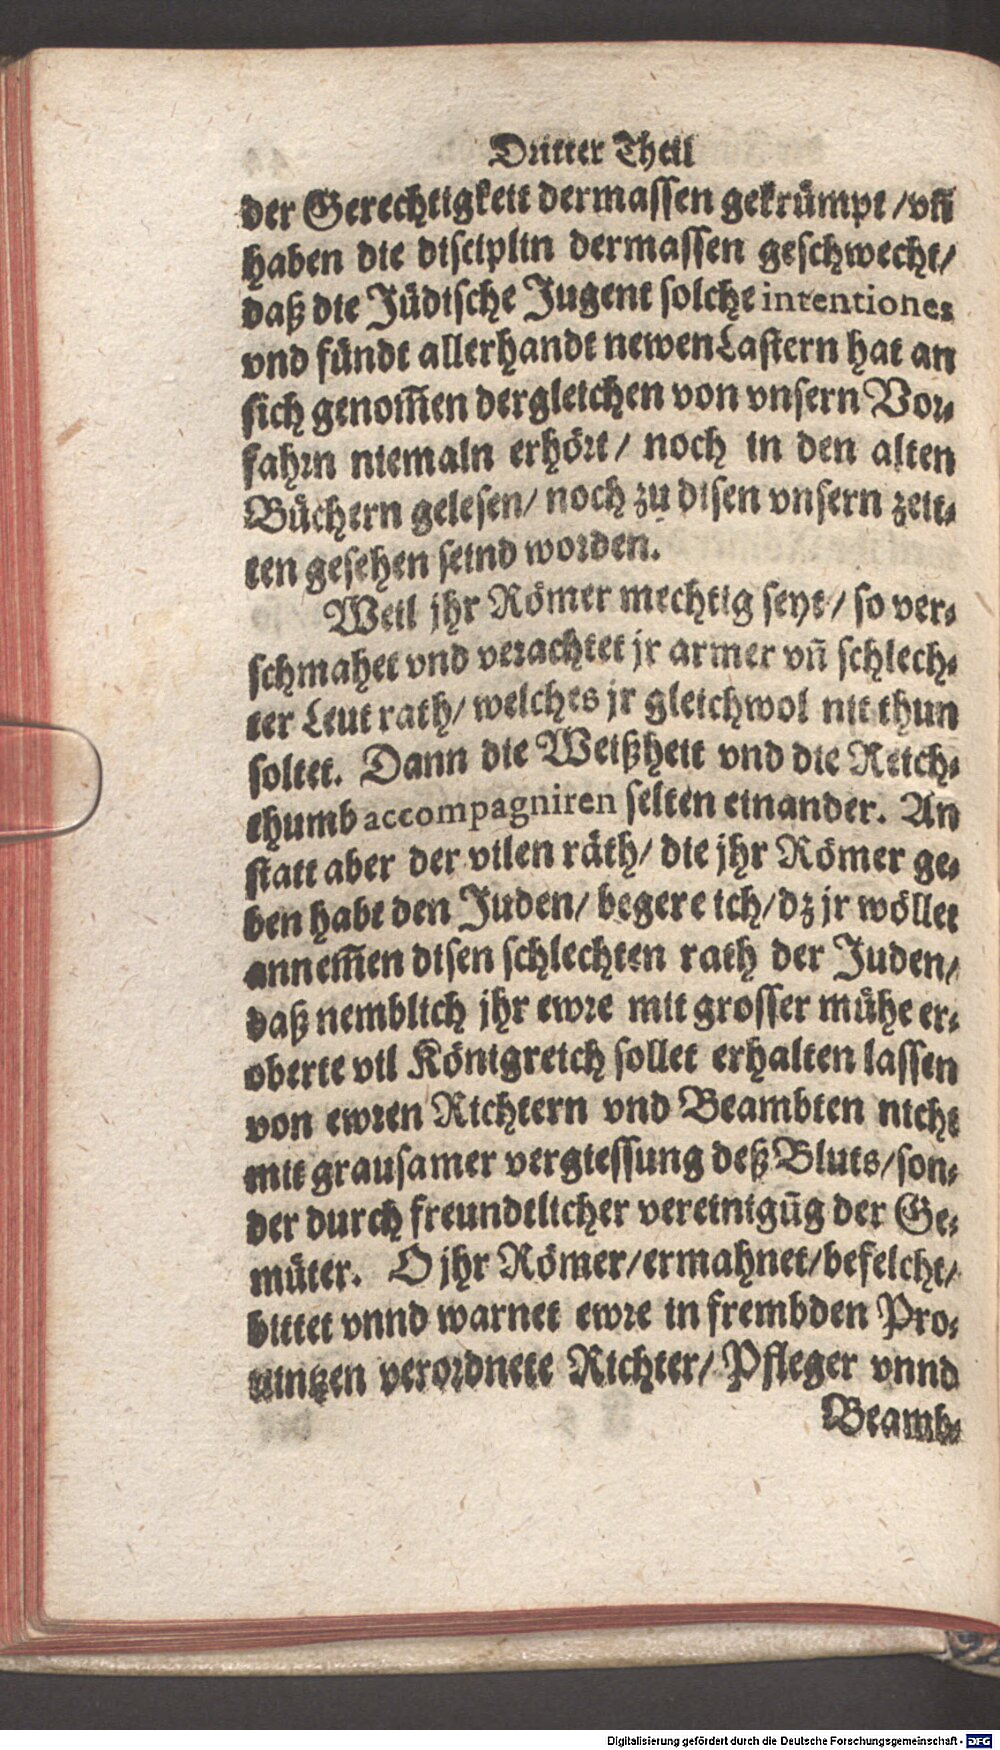 Dritter Theil
der Gerechtigkeit dermassen gekrümpt / vñ
haben die disciplin dermassen geschwecht /
daß die Jüdische Jugent solche intentiones
vnd fündt allerhandt newen Lastern hat an
sich genom̃en dergleichen von vnsern Vor⸗
fahrn niemaln erhört / noch in den alten
Büchern gelesen / noch zu disen vnsern zeit⸗
ten gesehen seind worden.
Weil jhr Römer mechtig seyt / so ver⸗
schmahet vnd verachtet jr armer vñ schlech⸗
ter Leut rath / welches jr gleichwol nit thun
soltet. Dann die Weißheit vnd die Reich⸗
thumb accompagniren selten einander. An
statt aber der vilen räth / die jhr Römer ge⸗
ben habt den Juden / begere ich / dz jr wöllet
annem̃en disen schlechten rath der Juden /
daß nemblich jhr ewre mit grosser mühe er⸗
oberte vil Königreich sollet erhalten lassen
von ewren Richtern vnd Beambten nicht
mit grausamer vergiessung deß Bluts / son⸗
der durch freundtlicher vereinigũg der Ge⸗
müter. O jhr Römer / ermahnet / befelcht /
bittet vnnd warnet ewre in frembden Pro⸗
uintzen verordnete Richter / Pfleger vnnd
Beamb⸗
Digitalisierung gefördert durch die Deutsche Forschungsgemeinschaft - DFG